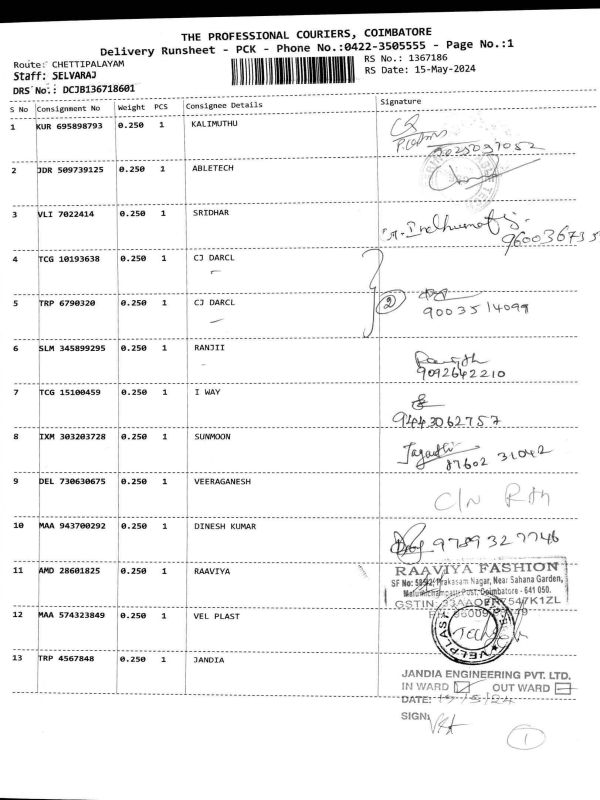 THE PROFESSIONAL COURIERS, COIMBATORE
Delivery Runsheet - PCK - Phone No.:0422-3505555 - Page No.:1
Route: CHETTIPALAYAM
RS No.: 1367186
Staff: SELVARAJ
RS Date: 15-May-2024
DRS No.: DCJB136718601
S No Consignment No Weight PCS Consignee Details Signature
1 KUR 695898793 0.250 1 KALIMUTHU
2 JDR 509739125 0.250 1 ABLETECH
3 VLI 7022414 0.250 1 SRIDHAR
4 TCG 10193638 0.250 1 CJ DARCL
5 TRP 6790320 0.250 1 CJ DARCL 2
9003514099
6 SLM 345899295 0.250 1 RANJII
9092642210
7 TCG 15100459 0.250 1 I WAY
9443062757
8 IXM 303203728 0.250 1 SUNMOON
87602 31042
9 DEL 730630675 0.250 1 VEERAGANESH
C/N
10 MAA 943700292 0.250 1 DINESH KUMAR 9789327746
11 AMD 28601825 0.250 1 RAAVIYA
RAAVIYA FASHION
Prakasam Nagar, Near: Sahana Garden,
Post, Coimbatore - 641 050.
GSTIN
12 MAA 574323849 0.250 1 VEL PLAST
VELPLAST
13 TRP 4567848 0.250 1 JANDIA
JANDIA ENGINEERING PVT. LTD.
IN WARD OUT WARD
DATE:
SIGN:
1